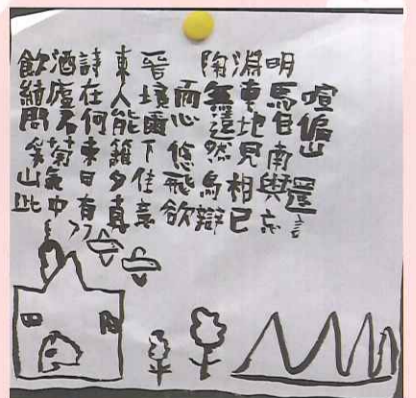 飲酒詩 東晉 陶淵明
結廬在人境而無車馬喧
問君何能爾心遠地自偏
菊東籬下悠然見南山
山氣日夕佳飛鳥相與還
此中有真意欲辯已忘言